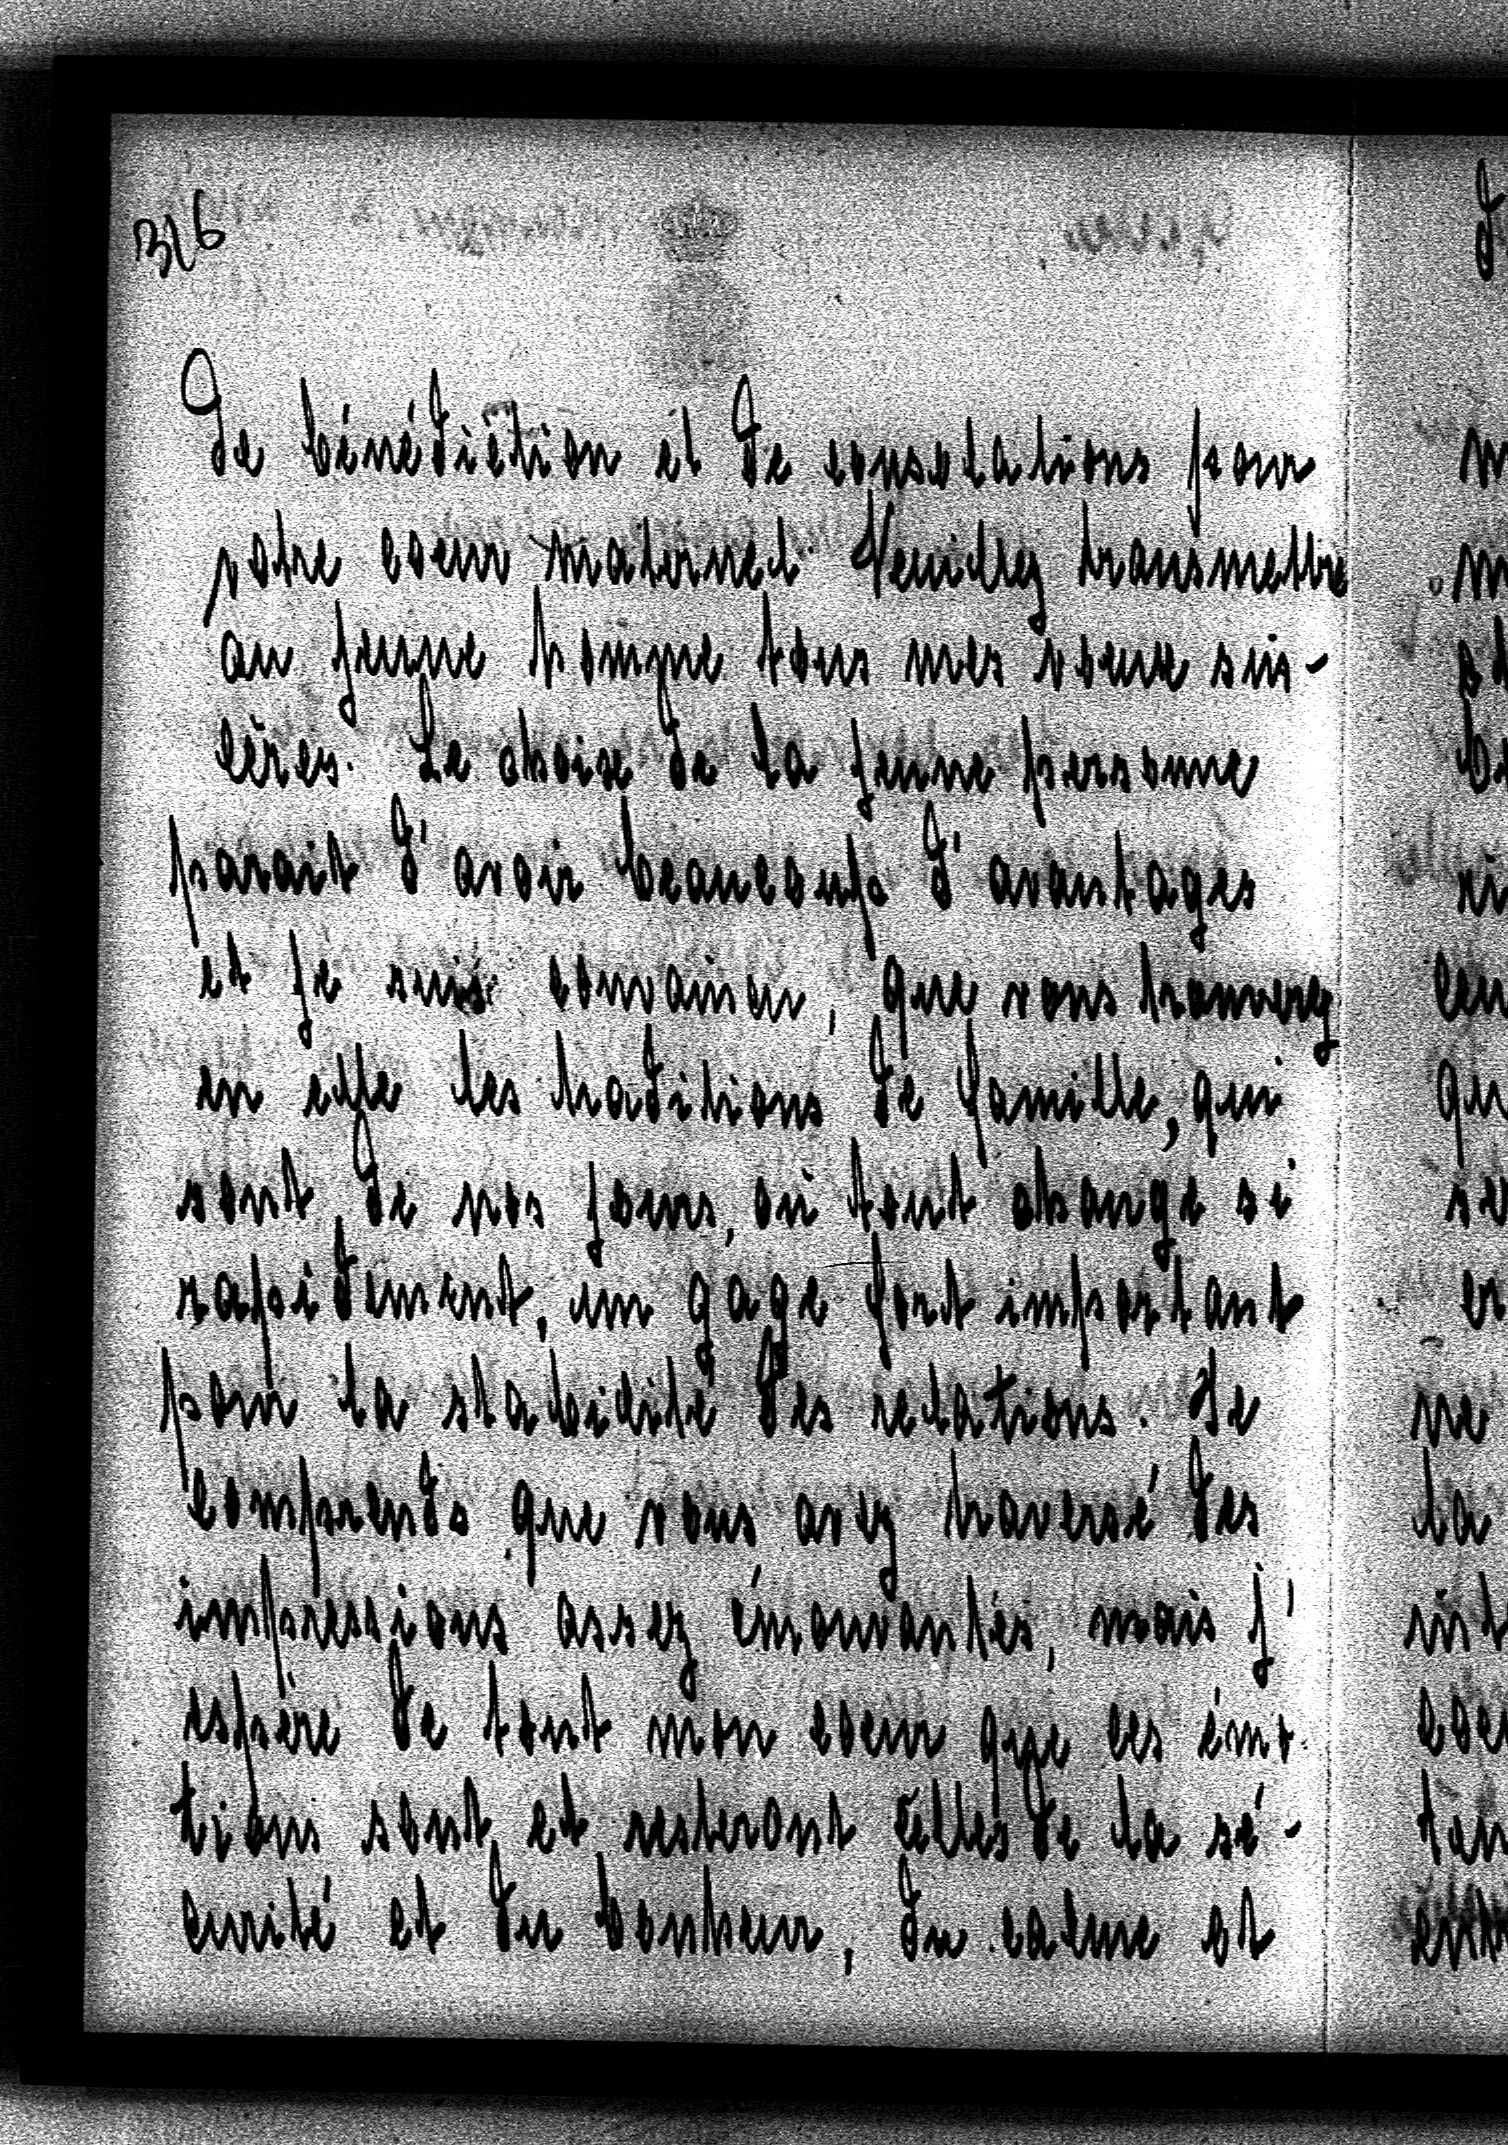 316
de bénédiction et de consolations pour
votre coeur maternel. Veuillez transmettre
au jeune homme tous mes voeux sin-
cères. Le choix de la jeune personne
parait d'avoir beaucoup d'avantages
et je suis convaincu, que vous trouverez
en elle les traditions de famille, qui
sont, de nos jours, où tout change si
rapidement, un gage fort important
pour la stabilité des relations. Je
comprends que vous avez traversé des
impressions assez émouvantes, mais j'
espère de tout mon coeur que ces émo-
tions sont et resteront celles de la sé-
curité et du bonheur, du calme et